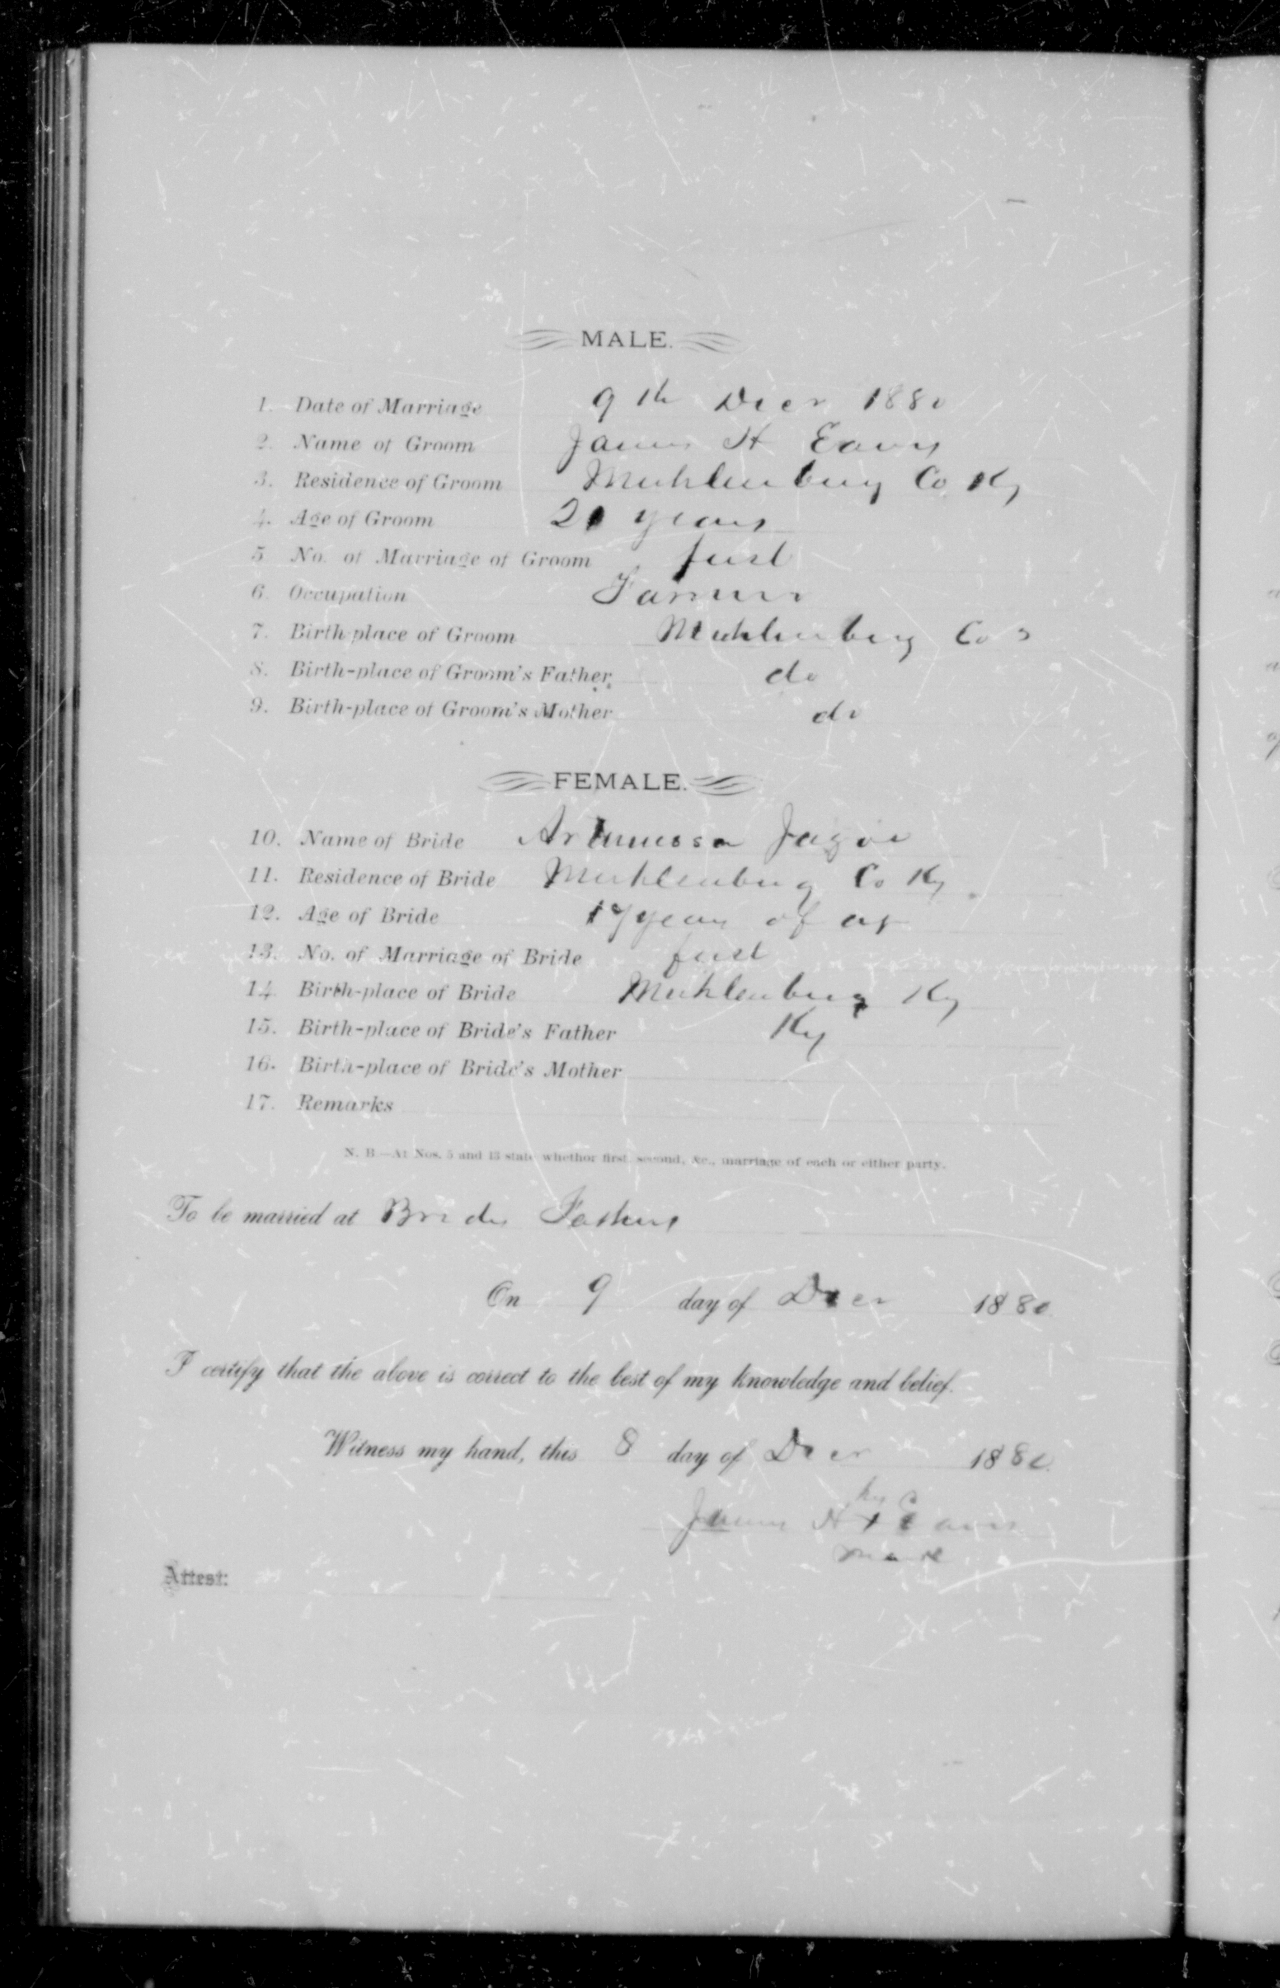 MALE.
1. Date of Marriage 9th Decr 1880
2. Name of Groom James H Eaves
3. Residence of Groom Muhlenburg Co Ky
4. Age of Groom 21 years
5 No. of Marriage of Groom first
6. Occupation Farmer
7. Birth-place of Groom Muhlenburg Co
8. Birth-place of Groom's Father do
9. Birth-place of Groom's Mother do
FEMALE.
10. Name of Bride
11. Residence of Bride Muhlenburg Co Ky
12. Age of Bride 17 years of
13. No. of Marriage of Bride first
14 Birth-place of Bride Muhlenburg Ky
15. Birth-place of Bride's Father Ky
16. Birth-place of Bride's Mother
17. Remarks
N. B.—At Nos. 5 and 13 state whether first, second, &c., marriage of each or either party.
To be married at Brides Fathers
On 9 day of Decr 1880
I certify that the above is correct to the best of my knowledge and belief.
Witness my hand, this 8 day of Decr 1880
his
James H x Eaves
mark
Attest: